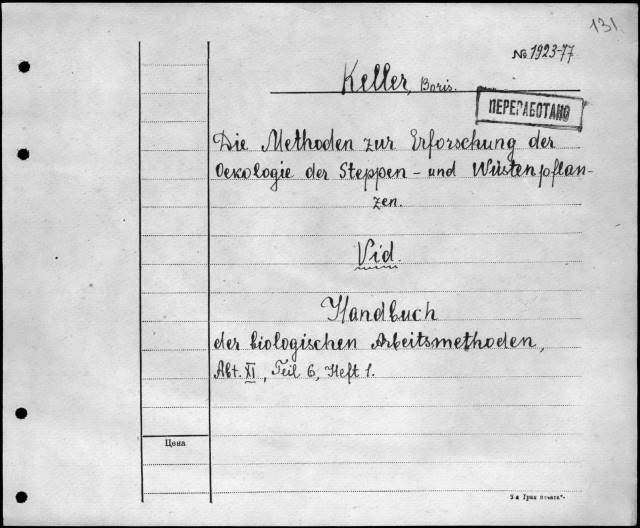 131.
№ 1923-77
Keller, Boris.
ПЕРЕРАБОТАНО
Die Methoden zur Erforschung der
Oekologie der Steppen- und Wüstenpflan-
zen.
Vid.
Handbuch
der biologischen Arbeitsmethoden,
Abt. XI, Teil 6, Heft 1.
Цена